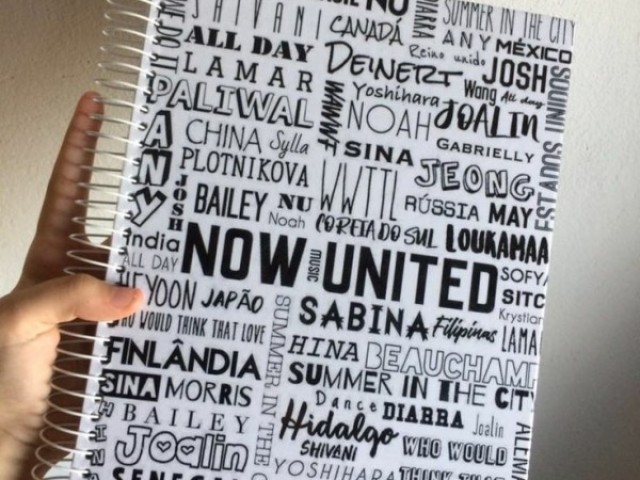 SHIVANI
NU
SUMMER IN THE CITY
CANADÁ
DIARRA
ANY MÉXICO
ALL DAY
Reino unido
LAMAR
DEINERT
Wang
JOSH
All day
PALIWAL
Yoshihara
JOALIN
NOAH
CHINA Sylla
GABRIELLY
SINA
PLOTNIKOVA
WWTTL
JEONG
ANY
JOSH
BAILEY NU
Noah
RÚSSIA MAY
COREIA DO SUL
LOUKAMAA
India
ALL DAY
NOW UNITED
music
HEYOON JAPÃO
SITC
SABINA
Filipinas
WOULD THINK THAT LOVE
SUMMER IN THE
FINLÂNDIA
HINA
SUMMER IN THE CITY
SINA MORRIS
Dance DIARRA Joalin
BAILEY
Hidalgo
SHIVANI
WHO WOULD
Joalin
YOSHIHARA
THINK
HINA